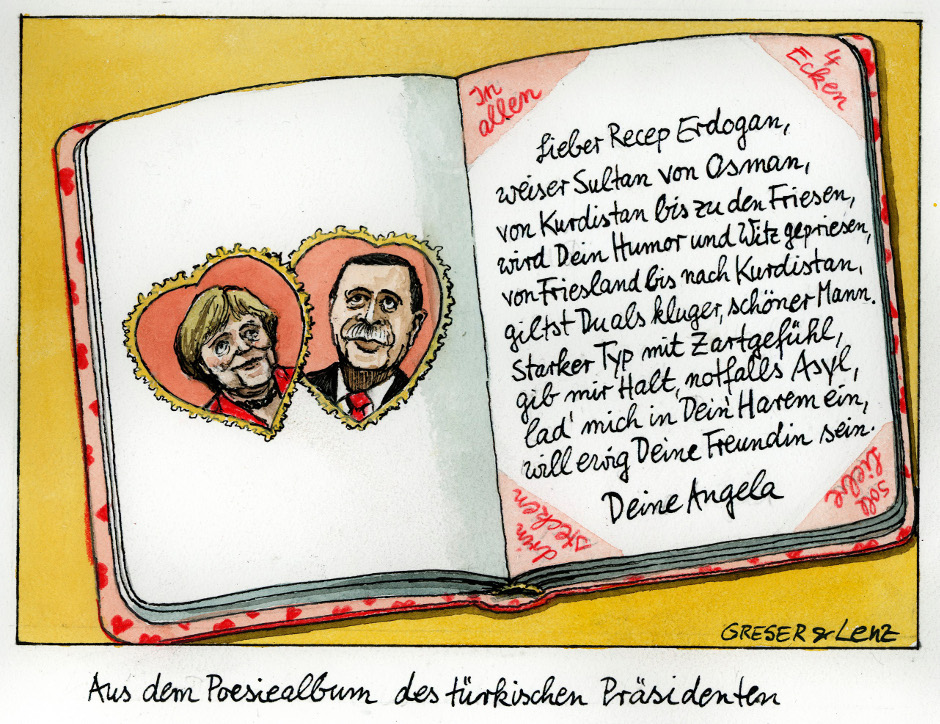 In
allen
4
Ecken
Lieber Recep Erdogan,
weiser Sultan von Osman,
von Kurdistan bis zu den Friesen,
wird Dein Humor und Witz gepriesen,
von Friesland bis nach Kurdistan,
giltst Du als kluger, schöner Mann.
Starker Typ mit Zartgefühl,
gib mir Halt, notfalls Asyl,
lad' mich in Dein Harem ein,
will ewig Deine Freundin sein.
Deine Angela
soll
Liebe
drin
stecken
GRESER & Lenz
Aus dem Poesiealbum des türkischen Präsidenten